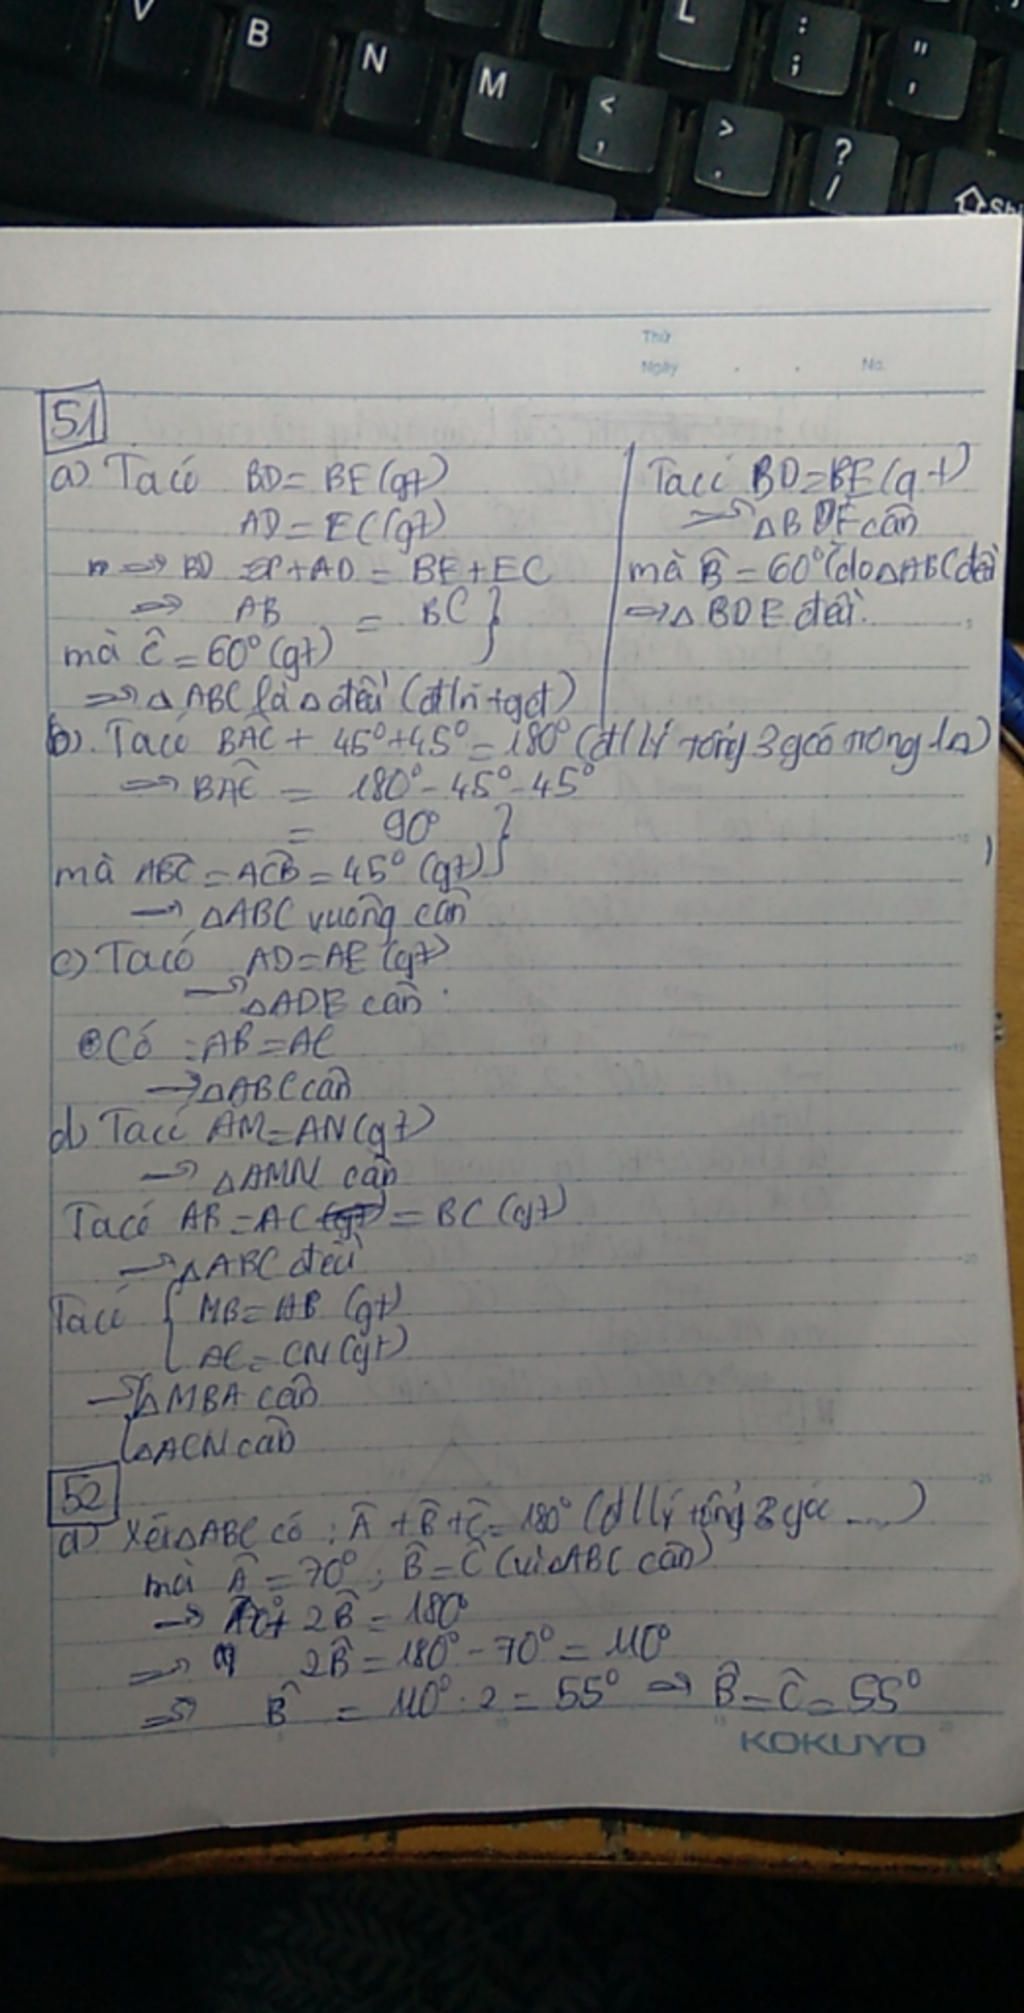 V B N M L : ; " ' < , > . ? / Shi
Thứ
Ngày . . No.
51
a) Ta có BD = BE (gt)
AD = EC (gt)
=> BD + AD = BE + EC
=> AB = BC }
mà Ĉ = 60° (gt)
=> △ABC là △ đều (đln + gt)
Ta có BD = BE (gt)
=> △BDE cân
mà B̂ = 60° (do △ABC đều
=> △BDE đều.
b). Ta có BAĈ + 45° + 45° = 180° (đl lý tổng 3 góc trong 1△)
=> BAĈ = 180° - 45° - 45°
= 90° }
mà ABĈ = ACB̂ = 45° (gt)
-> △ABC vuông cân
c) Ta có AD = AE (gt)
-> △ADE cân
Có : AB = AC
-> △ABC cân
d) Ta có AM = AN (gt)
-> △AMN cân
Ta có AB = AC (gt) = BC (gt)
-> △ABC đều
Ta có { MB = AB (gt)
AC = CN (gt)
-> { △MBA cân
△ACN cân
52
a) Xét △ABC có : Â + B̂ + Ĉ = 180° (đl lý tổng 3 góc ....)
mà Â = 70° ; B̂ = Ĉ (vì △ABC cân)
-> 2B̂ = 180°
=> 2B̂ = 180° - 70° = 110°
=> B̂ = 110° : 2 = 55° => B̂ = Ĉ = 55°
KOKUYO